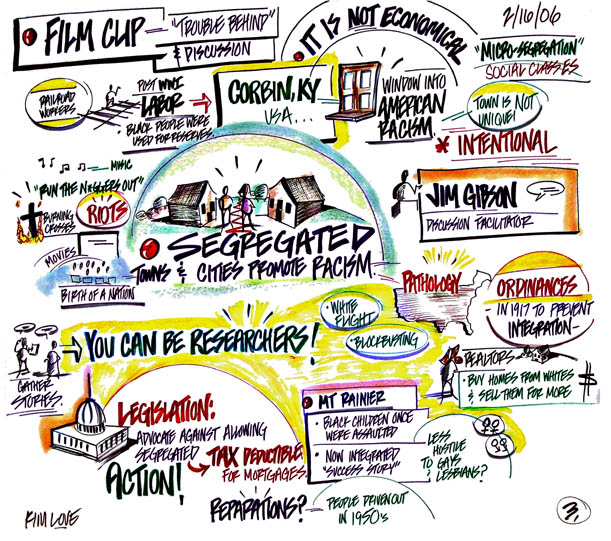 FILM CLIP
"TROUBLE BEHIND"
& DISCUSSION
IT IS NOT ECONOMICAL
2/16/06
"MICRO-SEGREGATION"
SOCIAL CLASSES
RAILROAD
WORKERS
POST WWI
LABOR
BLACK PEOPLE WERE
USED FOR RESERVES.
CORBIN, KY
USA...
WINDOW INTO
AMERICAN
RACISM
TOWN IS NOT
UNIQUE!
* INTENTIONAL
MUSIC
"RUN THE N*GGERS OUT"
BURNING
CROSSES
RIOTS
MOVIES
BIRTH OF A NATION
SEGREGATED
TOWNS & CITIES PROMOTE RACISM
JIM GIBSON
DISCUSSION FACILITATOR
PATHOLOGY
ORDINANCES
- IN 1917 TO PREVENT
INTEGRATION -
• WHITE
FLIGHT
• BLOCKBUSTING
REALTORS
• BUY HOMES FROM WHITES
& SELL THEM FOR MORE
$
GATHER
STORIES.
YOU CAN BE RESEARCHERS!
LEGISLATION:
ADVOCATE AGAINST ALLOWING
SEGREGATED
TAX DEDUCTIBLE
FOR MORTGAGES.
ACTION!
MT RAINIER
• BLACK CHILDREN ONCE
WERE ASSAULTED
• NOW INTEGRATED
"SUCCESS STORY"
LESS
HOSTILE
TO GAYS
& LESBIANS?
REPARATIONS?
PEOPLE DRIVEN OUT
IN 1950's
KIM LOVE
3,